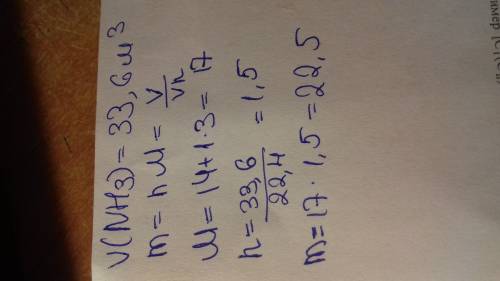 V(NH3) = 33,6 м3
m = n M = V/Vn
M = 14+1·3 = 17
n = 33,6/22,4 = 1,5
m = 17 · 1,5 = 22,5